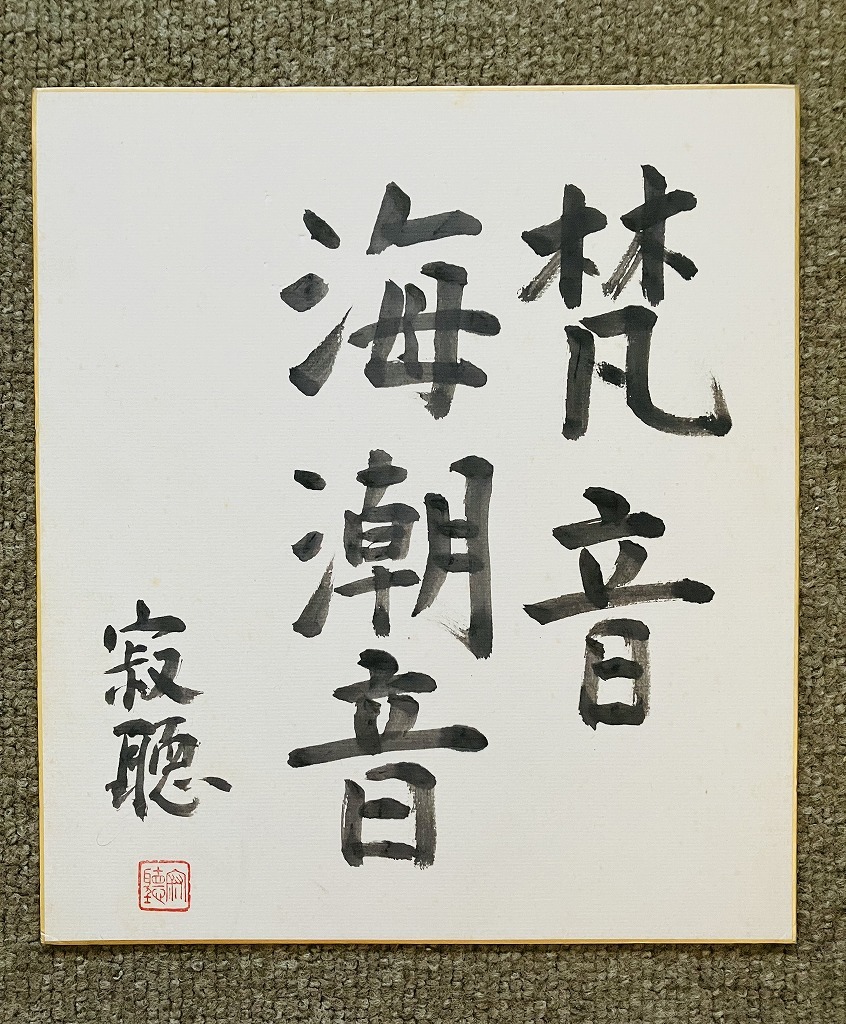 梵音
海潮音
寂聴
寂聴